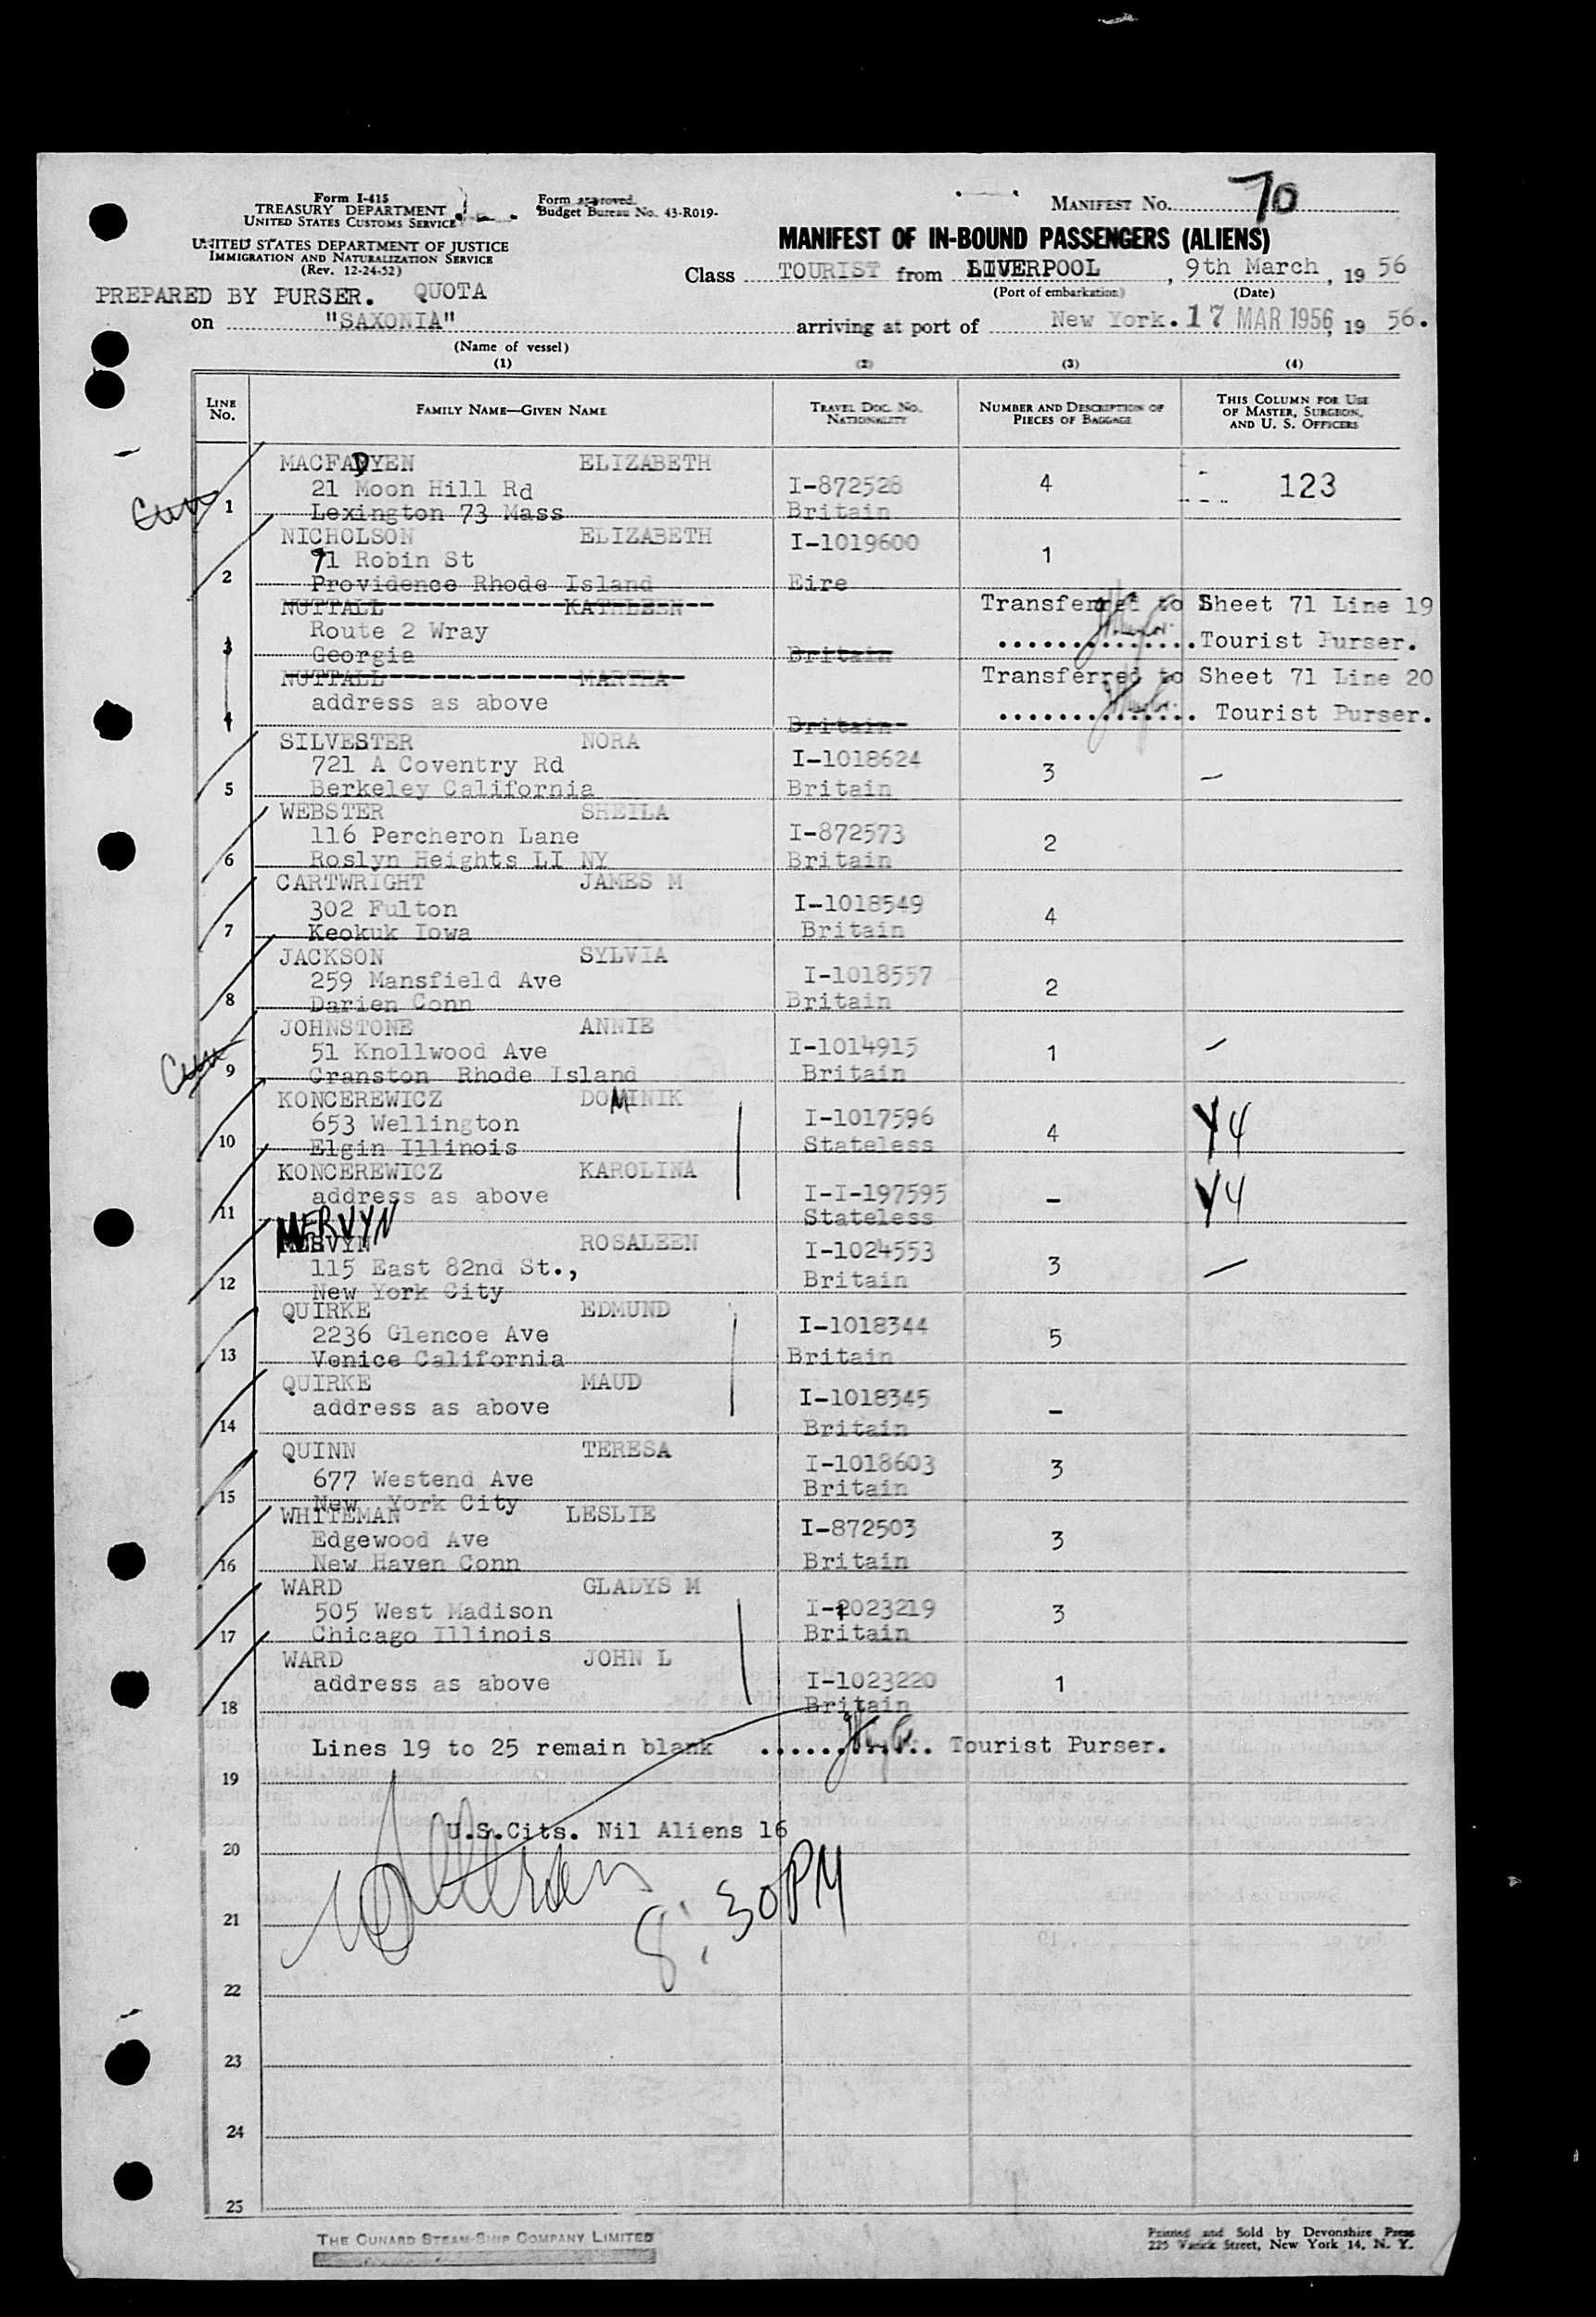 Form I-415
TREASURY DEPARTMENT
UNITED STATES CUSTOMS SERVICE
Form approved.
Budget Bureau No. 43-R019-
MANIFEST No. 70
UNITED STATES DEPARTMENT OF JUSTICE
IMMIGRATION AND NATURALIZATION SERVICE
(Rev. 12-24-52)
MANIFEST OF IN-BOUND PASSENGERS (ALIENS)
Class TOURIST from LIVERPOOL, 9th March, 19 56
(Port of embarkation) (Date)
PREPARED BY PURSER. QUOTA
on "SAXONIA" arriving at port of New York. 17 MAR 1956, 19 56.
(Name of vessel)
(1) (2) (3) (4)
LINE No. FAMILY NAME—GIVEN NAME TRAVEL DOC. No. NATIONALITY NUMBER AND DESCRIPTION OF PIECES OF BAGGAGE THIS COLUMN FOR USE OF MASTER, SURGEON, AND U. S. OFFICERS
MACFADYEN ELIZABETH
21 Moon Hill Rd I-872528 4 123
1 Lexington 73 Mass Britain
NICHOLSON ELIZABETH I-1019600
71 Robin St 1
2 Providence Rhode Island Eire
NUTTALL KATHLEEN Transferred to Sheet 71 Line 19
Route 2 Wray Tourist Purser.
3 Georgia Britain
NUTTALL MARTHA Transferred to Sheet 71 Line 20
address as above
4 Britain Tourist Purser.
SILVESTER NORA I-1018624
721 A Coventry Rd 3 —
5 Berkeley California Britain
WEBSTER SHEILA
116 Percheron Lane I-872573 2
6 Roslyn Heights LI NY Britain
CARTWRIGHT JAMES M
302 Fulton I-1018549 4
7 Keokuk Iowa Britain
JACKSON SYLVIA
259 Mansfield Ave I-1018557 2
8 Darien Conn Britain
JOHNSTONE ANNIE
51 Knollwood Ave I-1014915 1 —
9 Cranston Rhode Island Britain
KONCEREWICZ DOMINIK
653 Wellington I-1017596 4 Y4
10 Elgin Illinois Stateless
KONCEREWICZ KAROLINA
address as above I-I-197595 - Y4
11 Stateless
MERVYN
MERVYN ROSALEEN I-1024553
115 East 82nd St., 3 —
12 New York City Britain
QUIRKE EDMUND
2236 Glencoe Ave I-1018344 5
13 Venice California Britain
QUIRKE MAUD
address as above I-1018345 -
14 Britain
QUINN TERESA
677 Westend Ave I-1018603 3
15 New York City Britain
WHITEMAN LESLIE
Edgewood Ave I-872503 3
16 New Haven Conn Britain
WARD GLADYS M
505 West Madison I-1023219 3
17 Chicago Illinois Britain
WARD JOHN L
address as above I-1023220 1
18 Britain
Lines 19 to 25 remain blank Tourist Purser.
19
U.S.Cits. Nil Aliens 16
20
8:30PM
21
22
23
24
25
THE CUNARD STEAM-SHIP COMPANY LIMITED
Printed and Sold by Devonshire Press
225 Varick Street, New York 14, N. Y.